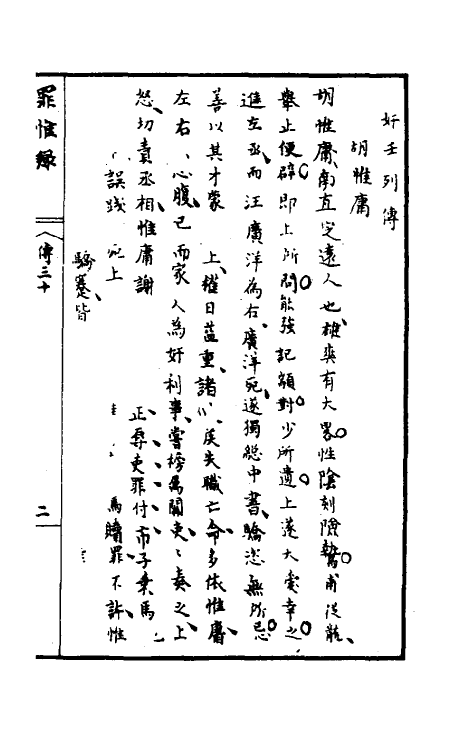 奸壬列傳
胡惟庸
胡惟庸南直定遠人也雄爽有大畧性陰刻險鷙甫從龍
舉止便辟即上所問能強記額對少所遺上遂大愛幸之
進左丞而汪廣洋為右廣洋死遂獨總中書驕恣無所忌
善以其才蒙 上權日益重諸 失職亡命多依惟庸
左右心腹已而家人為奸利事嘗榜為關吏〻奏之上
怒切責丞相惟庸謝 正辱吏罪付市子乘馬
誤踐 死上 馬贖罪不許惟
驕蹇皆
罪惟録
傳三十
二